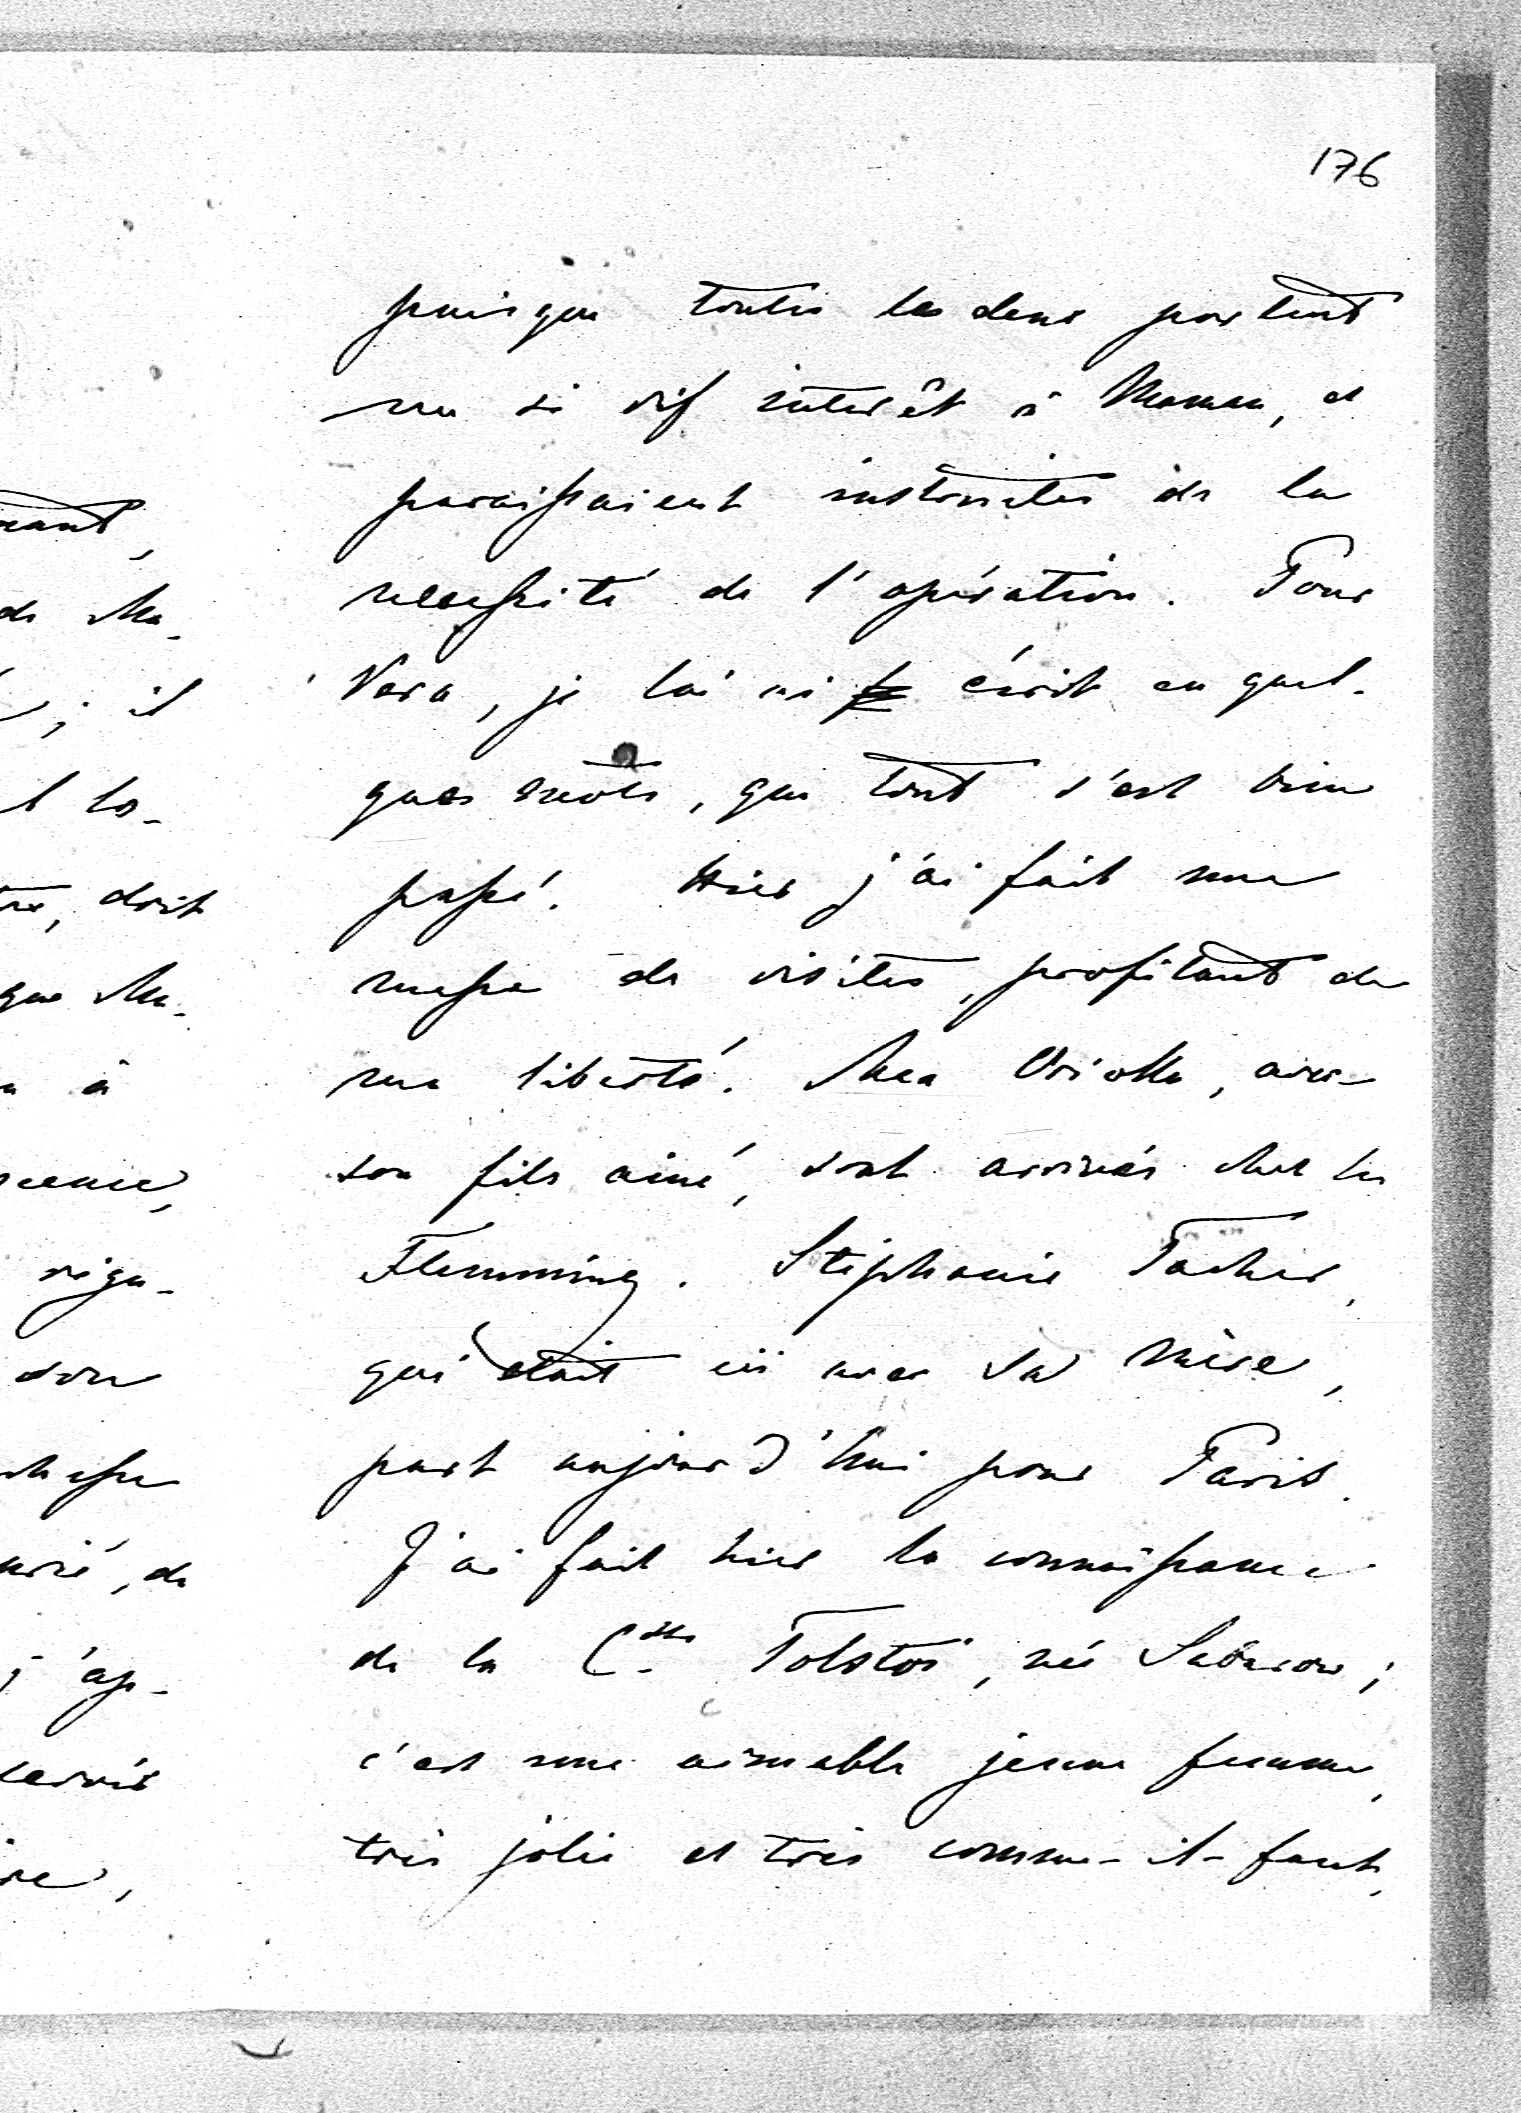 176
puisque toutes les deux portent
un si vif interêt à Maman, et
paraissaient instruites de la
necessité de l'opération. Pour
Vera, je lui ai écrit en quel-
ques mots, que tout s'est bien
passé. Hier j'ai fait une
masse de visites, profitant de
ma liberté. Mea Oriolla, avec
son fils ainé, sont arrivés chez les
Flemming. Stéphanie Tascher,
qui était ici avec sa mère,
part aujourd'hui pour Paris.
J'ai fait hier la connaissance
de la C.sse Tolstoï, née
c'est une aimable jeune femme,
très jolie et très comme-il-faut,
de Ma-
; il
doit
que Ma-
à
régu-
son
de
j'ap-